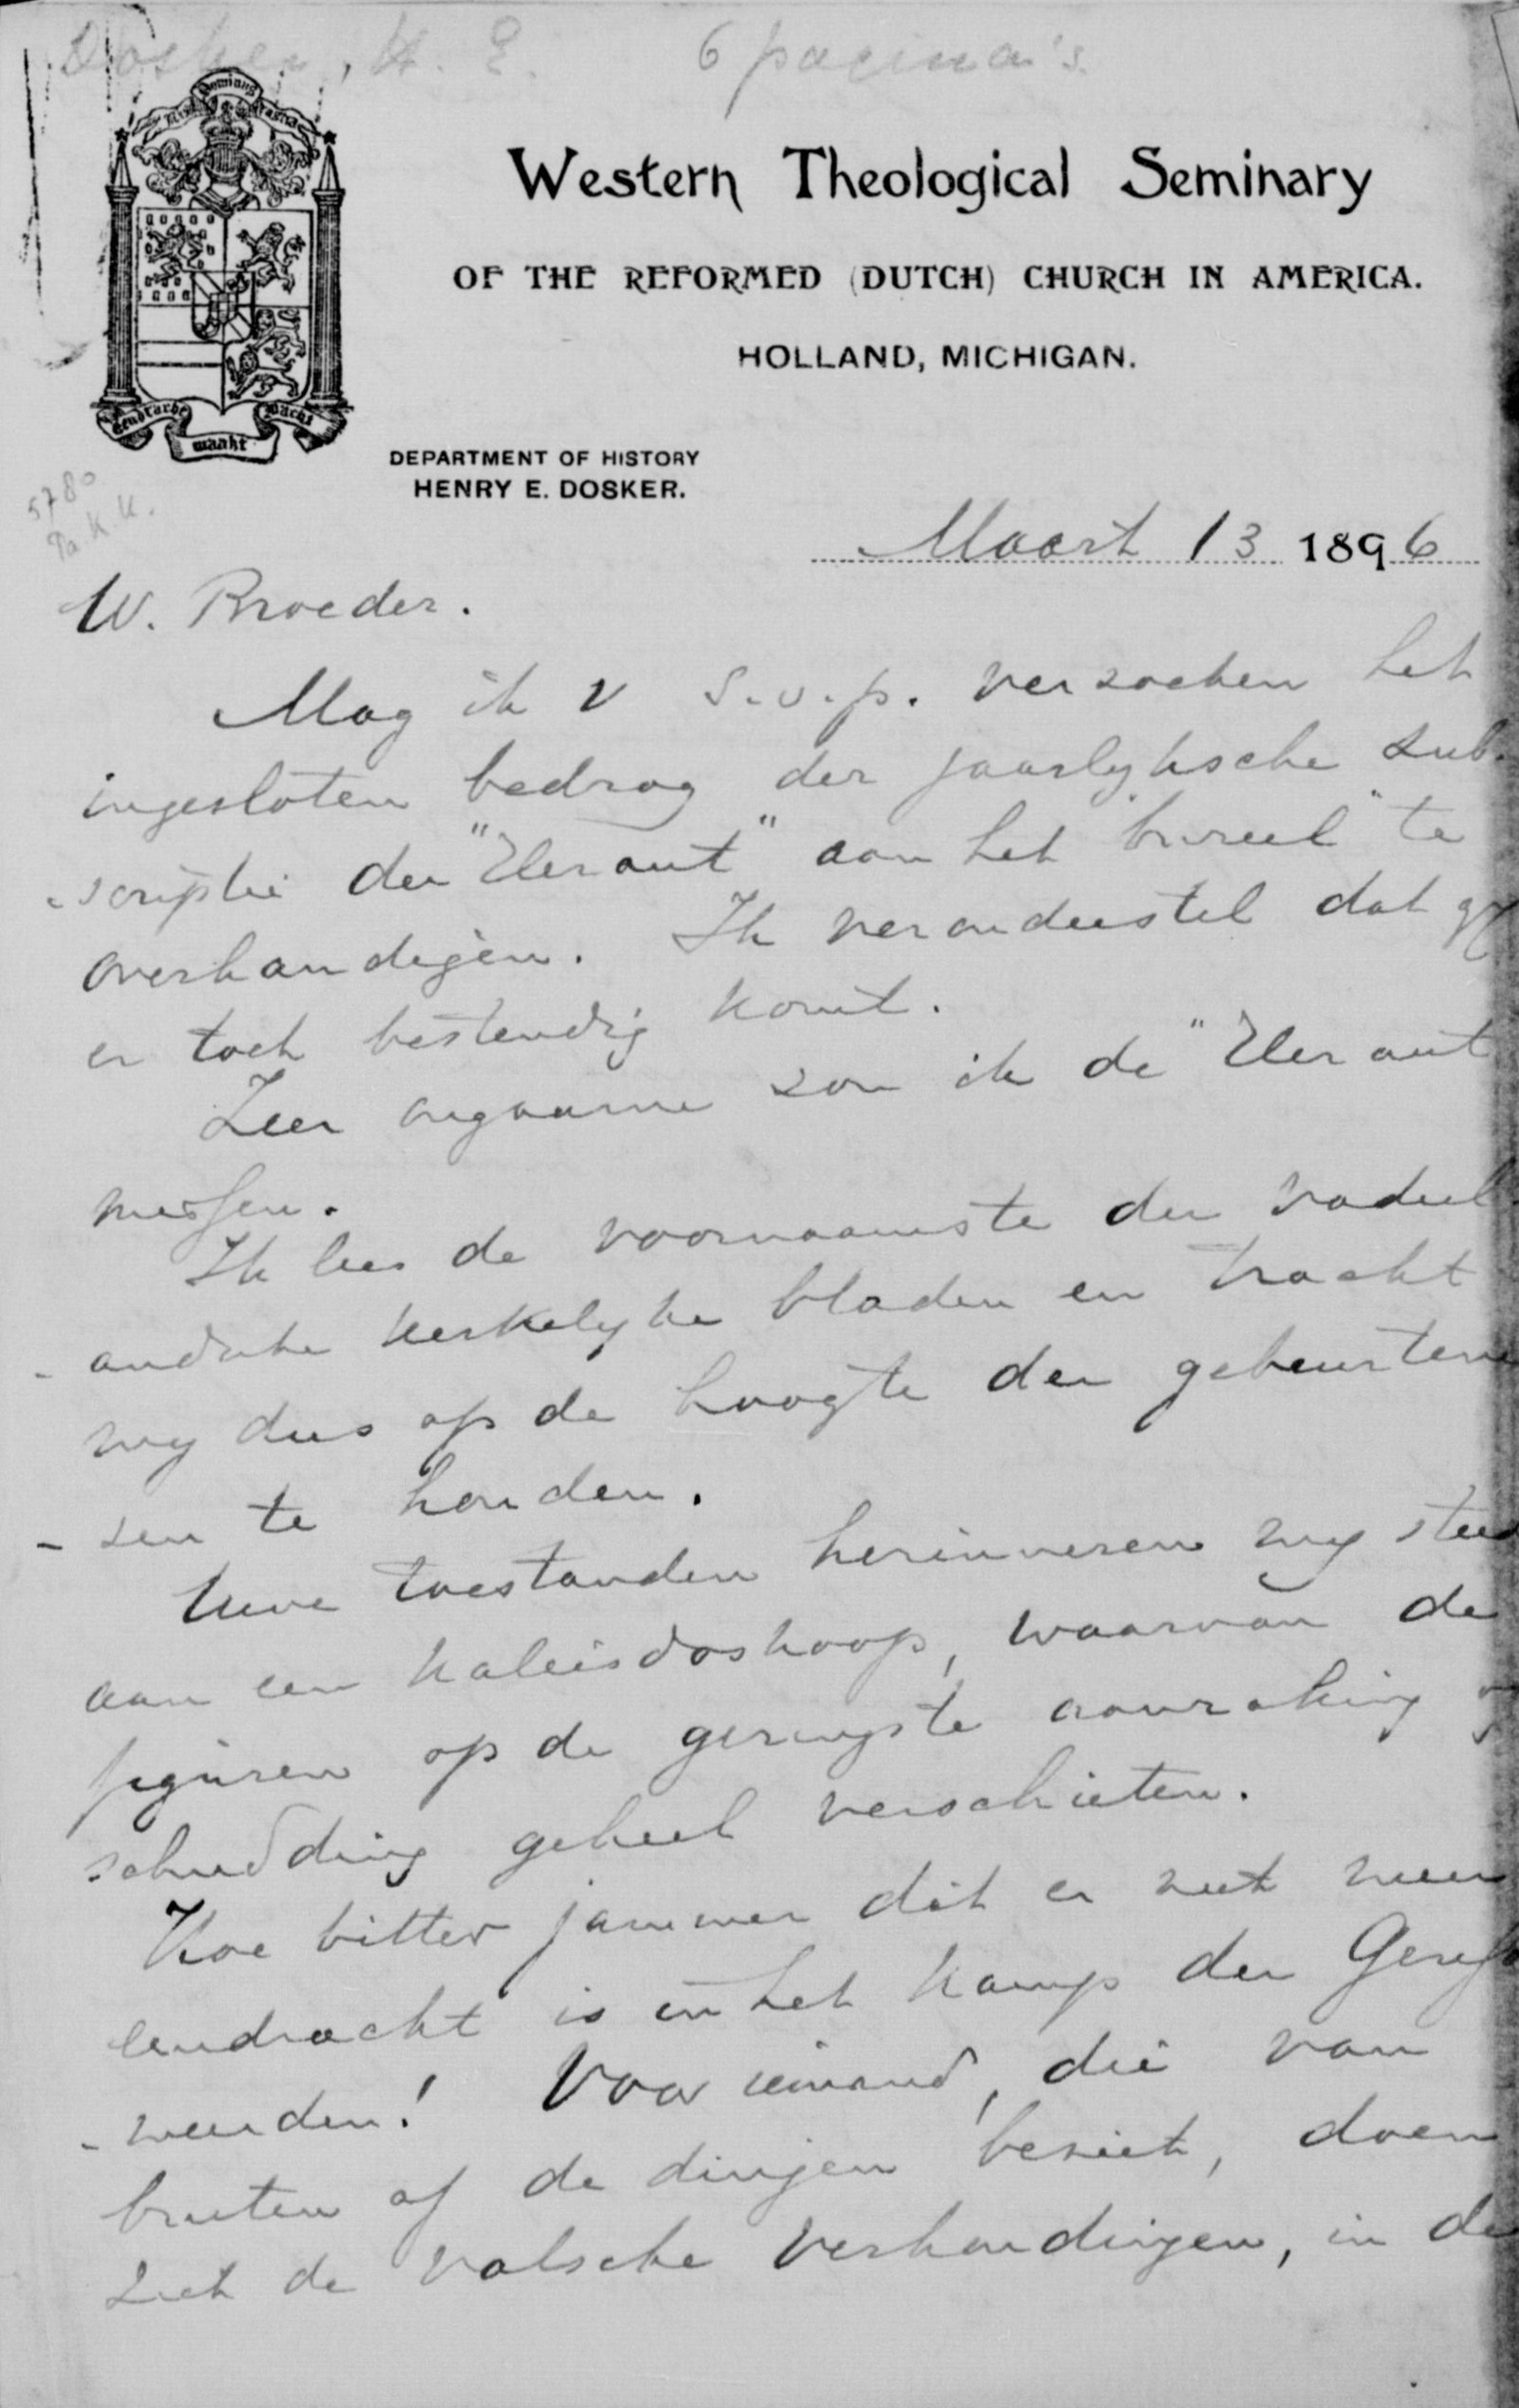 Dosker, H. E. 6 pagina's.
Dominus
Western Theological Seminary
OF THE REFORMED (DUTCH) CHURCH IN AMERICA.
HOLLAND, MICHIGAN.
Eendracht maakt Macht
DEPARTMENT OF HISTORY
HENRY E. DOSKER.
5780
Pa. K. K.
Maart 13 1896
W. Broeder.
Mag ik U s.v.p. verzoeken het
ingesloten bedrag der jaarlyksche sub-
-scriptie der "Heraut" aan het "bureel" te
overhandigen. Ik veronderstel dat gy
er toch bestendig komt.
Zeer ongaarne zou ik de "Heraut
missen.
Ik lees de voornaamste der vaderl
-andsche kerkelyke bladen en tracht
my dus op de hoogte der gebeurteni
-sen te houden.
Uwe toestanden herinneren my steeds
aan een kaleisdoskoop, waarvan de
figuren op de geringste aanraking of
schudding geheel verschieten.
Hoe bitter jammer dat er niet meer
eendracht is in het kamp der Gerefor
-meerden! Voor iemand, die van
buiten af de dingen beziet, doen
zich de valsche verhoudingen, in de